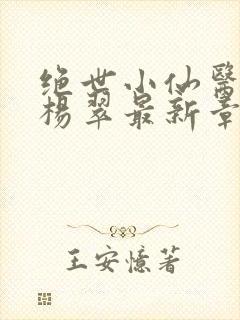 绝世小仙医
杨翠最新章
王安憶著